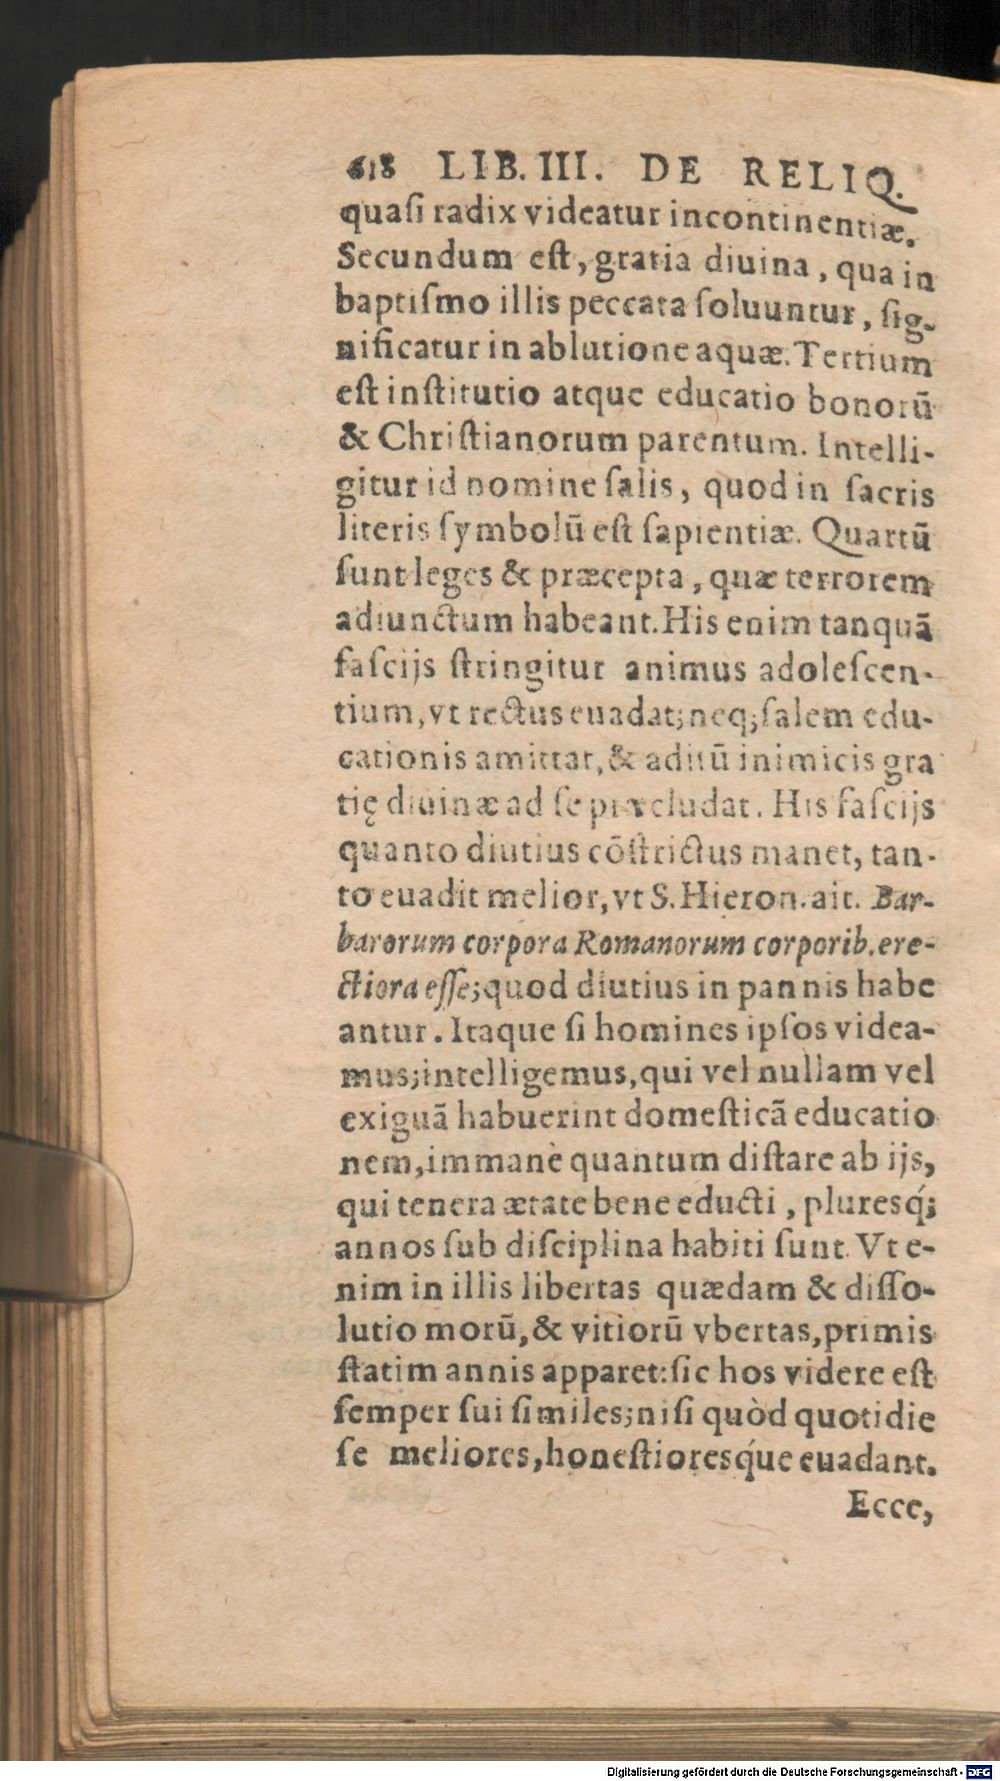 618 LIB. III. DE RELIQ.
quaſi radix videatur incontinentiæ.
Secundum eſt, gratia diuina, qua in
baptiſmo illis peccata ſoluuntur, ſig-
nificatur in ablutione aquæ. Tertium
eſt inſtitutio atque educatio bonorū
& Chriſtianorum parentum. Intelli-
gitur id nomine ſalis, quod in ſacris
literis ſymbolū eſt ſapientiæ. Quartū
ſunt leges & præcepta, quæ terrorem
adiunctum habeant. His enim tanquā
faſcijs ſtringitur animus adoleſcen-
tium, vt rectus euadat; neq; ſalem edu-
cationis amittat, & aditū inimicis gra
tię diuinæ ad ſe præcludat. His faſcijs
quanto diutius cōſtrictus manet, tan-
to euadit melior, vt S. Hieron. ait. Bar-
barorum corpora Romanorum corporib. ere-
ctiora eſſe; quod diutius in pannis habe
antur. Itaque ſi homines ipſos videa-
mus; intelligemus, qui vel nullam vel
exiguā habuerint domeſticā educatio
nem, immanè quantum diſtare ab ijs,
qui tenera ætate bene educti, pluresq́;
annos ſub diſciplina habiti ſunt. Vt e-
nim in illis libertas quædam & diſſo-
lutio morū, & vitiorū vbertas, primis
ſtatim annis apparet: ſic hos videre eſt
ſemper ſui ſimiles; niſi quòd quotidie
ſe meliores, honeſtioresq́ue euadant.
Ecce,
Digitalisierung gefördert durch die Deutsche Forschungsgemeinschaft - DFG